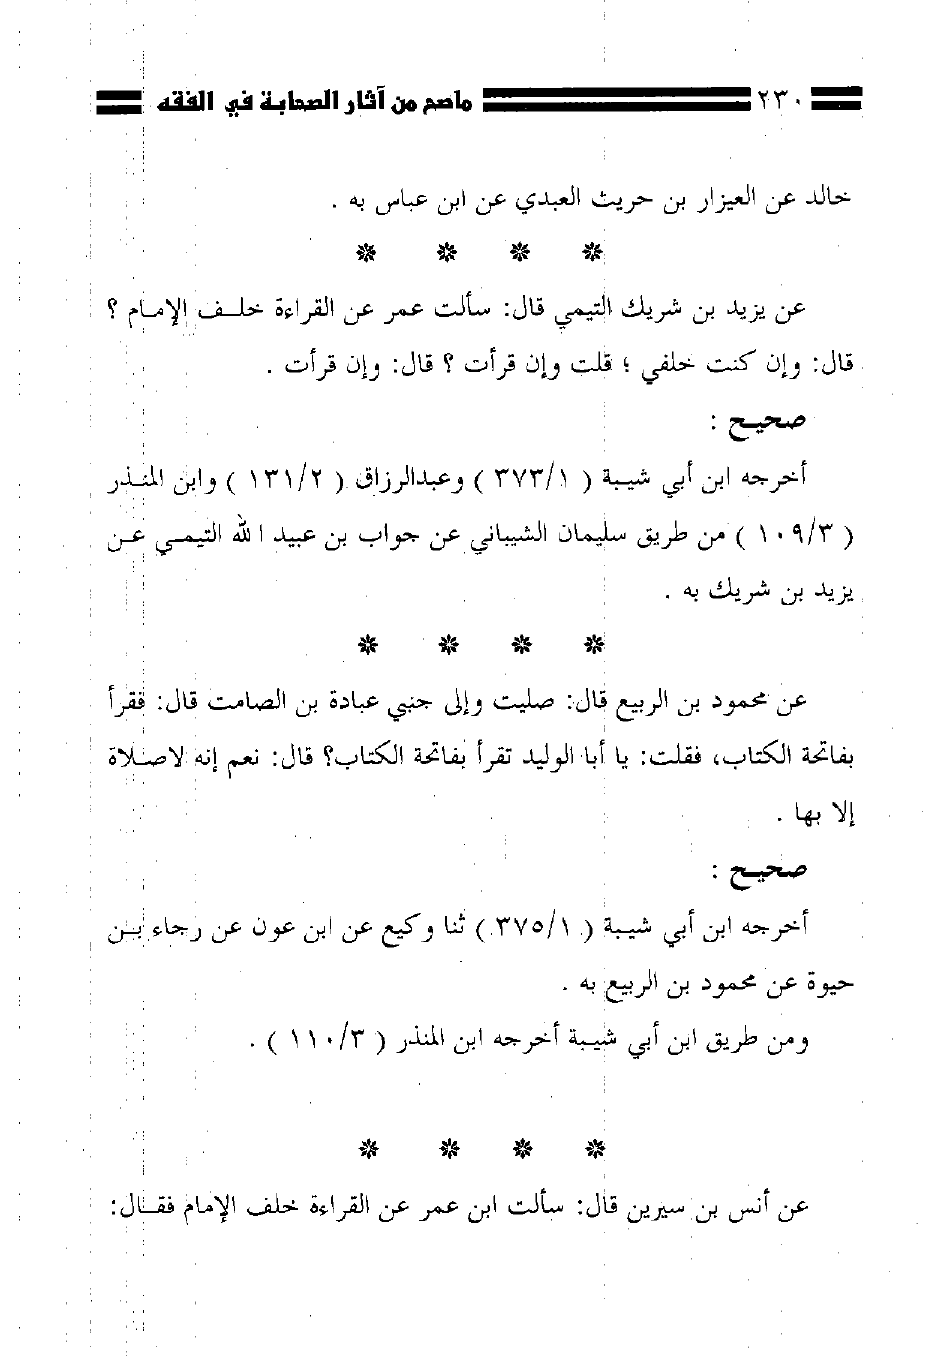 ٢٣٠ ماصح من آثار الصحابة في الفقه
خالد عن العيزار بن حريث العبدي عن ابن عباس به .
عن يزيد بن شريك التيمي قال: سألت عمر عن القراءة خلف الإمام ؟
قال: وإن كنت خلفي ؛ قلت وإن قرأت ؟ قال: وإن قرأت .
صحيح :
أخرجه ابن أبي شيبة ( ٣٧٣/١ ) وعبدالرزاق ( ١٣١/٢ ) وابن المنذر
( ١٠٩/٣ ) من طريق سليمان الشيباني عن جواب بن عبيد الله التيمي عن
يزيد بن شريك به .
عن محمود بن الربيع قال: صليت وإلى جنبي عبادة بن الصامت قال: فقرأ
بفاتحة الكتاب، فقلت: يا أبا الوليد تقرأ بفاتحة الكتاب؟ قال: نعم إنه لاصلاة
إلا بها .
صحيح :
أخرجه ابن أبي شيبة ( ٣٧٥/١ ) ثنا وكيع عن ابن عون عن رجاء بن
حيوة عن محمود بن الربيع به .
ومن طريق ابن أبي شيبة أخرجه ابن المنذر ( ١١٠/٣ ) .
عن أنس بن سيرين قال: سألت ابن عمر عن القراءة خلف الإمام فقال: